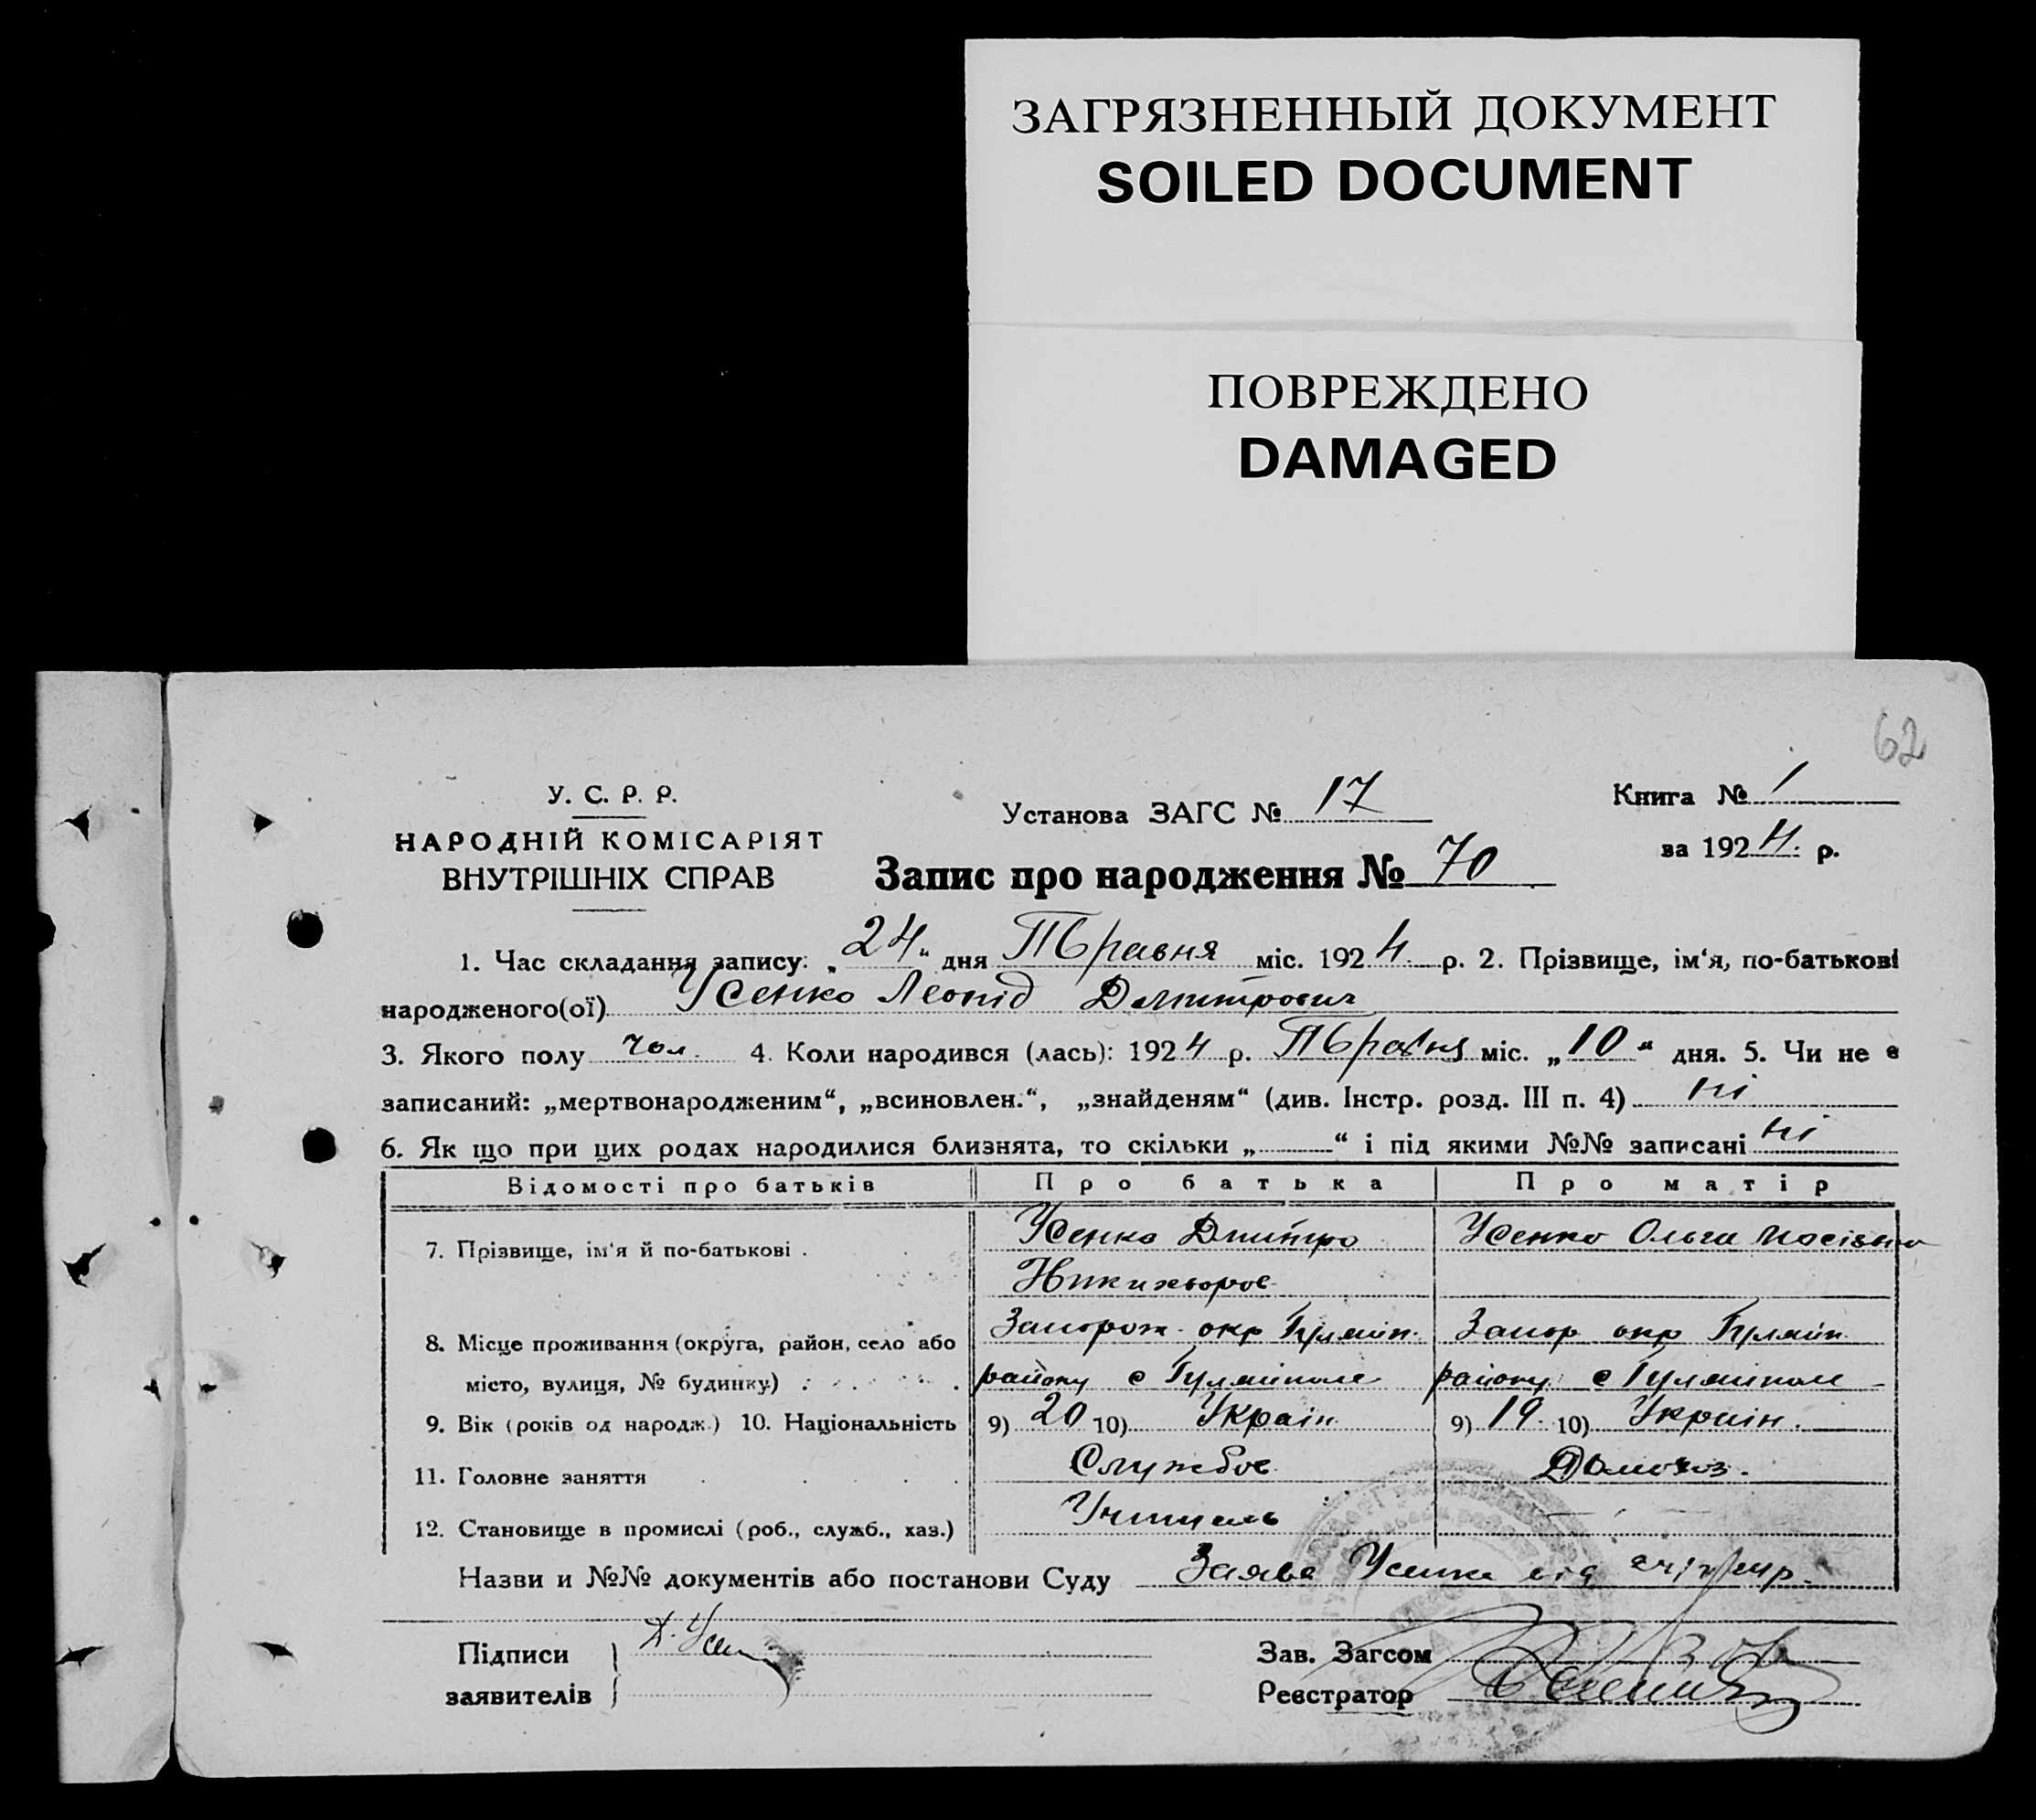 ЗАГРЯЗНЕННЫЙ ДОКУМЕНТ
SOILED DOCUMENT
ПОВРЕЖДЕНО
DAMAGED
62
У. С. Р. Р.
НАРОДНІЙ КОМІСАРІЯТ
ВНУТРІШНІХ СПРАВ
Установа ЗАГС № 17
Книга № 1
за 1924 р.
Запис про народження № 70
1. Час складання запису: „24“ дня Травня міс. 1924 р. 2. Прізвище, ім‘я, по-батькові
народженого(ої) Усенко Леонід Дмитрович
3. Якого полу чол. 4. Коли народився (лась): 1924 р. Травня міс. „10“ дня. 5. Чи не є
записаний: „мертвонародженим“, „всиновлен.“, „знайденям“ (див. Інстр. розд. III п. 4) ні
6. Як що при цих родах народилися близнята, то скільки „ “ і під якими №№ записані ні
Відомості про батьків Про батька Про матір
7. Прізвище, ім‘я й по-батькові Усенко Дмитро Усенко Ольга
Никихворов
8. Місце проживання (округа, район, село або Запорож. окр Гуляйп. Запор окр Гуляйп.
місто, вулиця, № будинку) району с Гуляйполе району с Гуляйполе
9. Вік (років од народж.) 10. Національність 9) 20 10) Україн. 9) 19 10) Україн.
11. Головне заняття Службов. Домохоз.
12. Становище в промислі (роб., служб., хаз.) Учитель
Назви и №№ документів або постанови Суду Заява Усенка від
Підписи
заявителів
Д. Усен
Зав. Загсом
Реєстратор